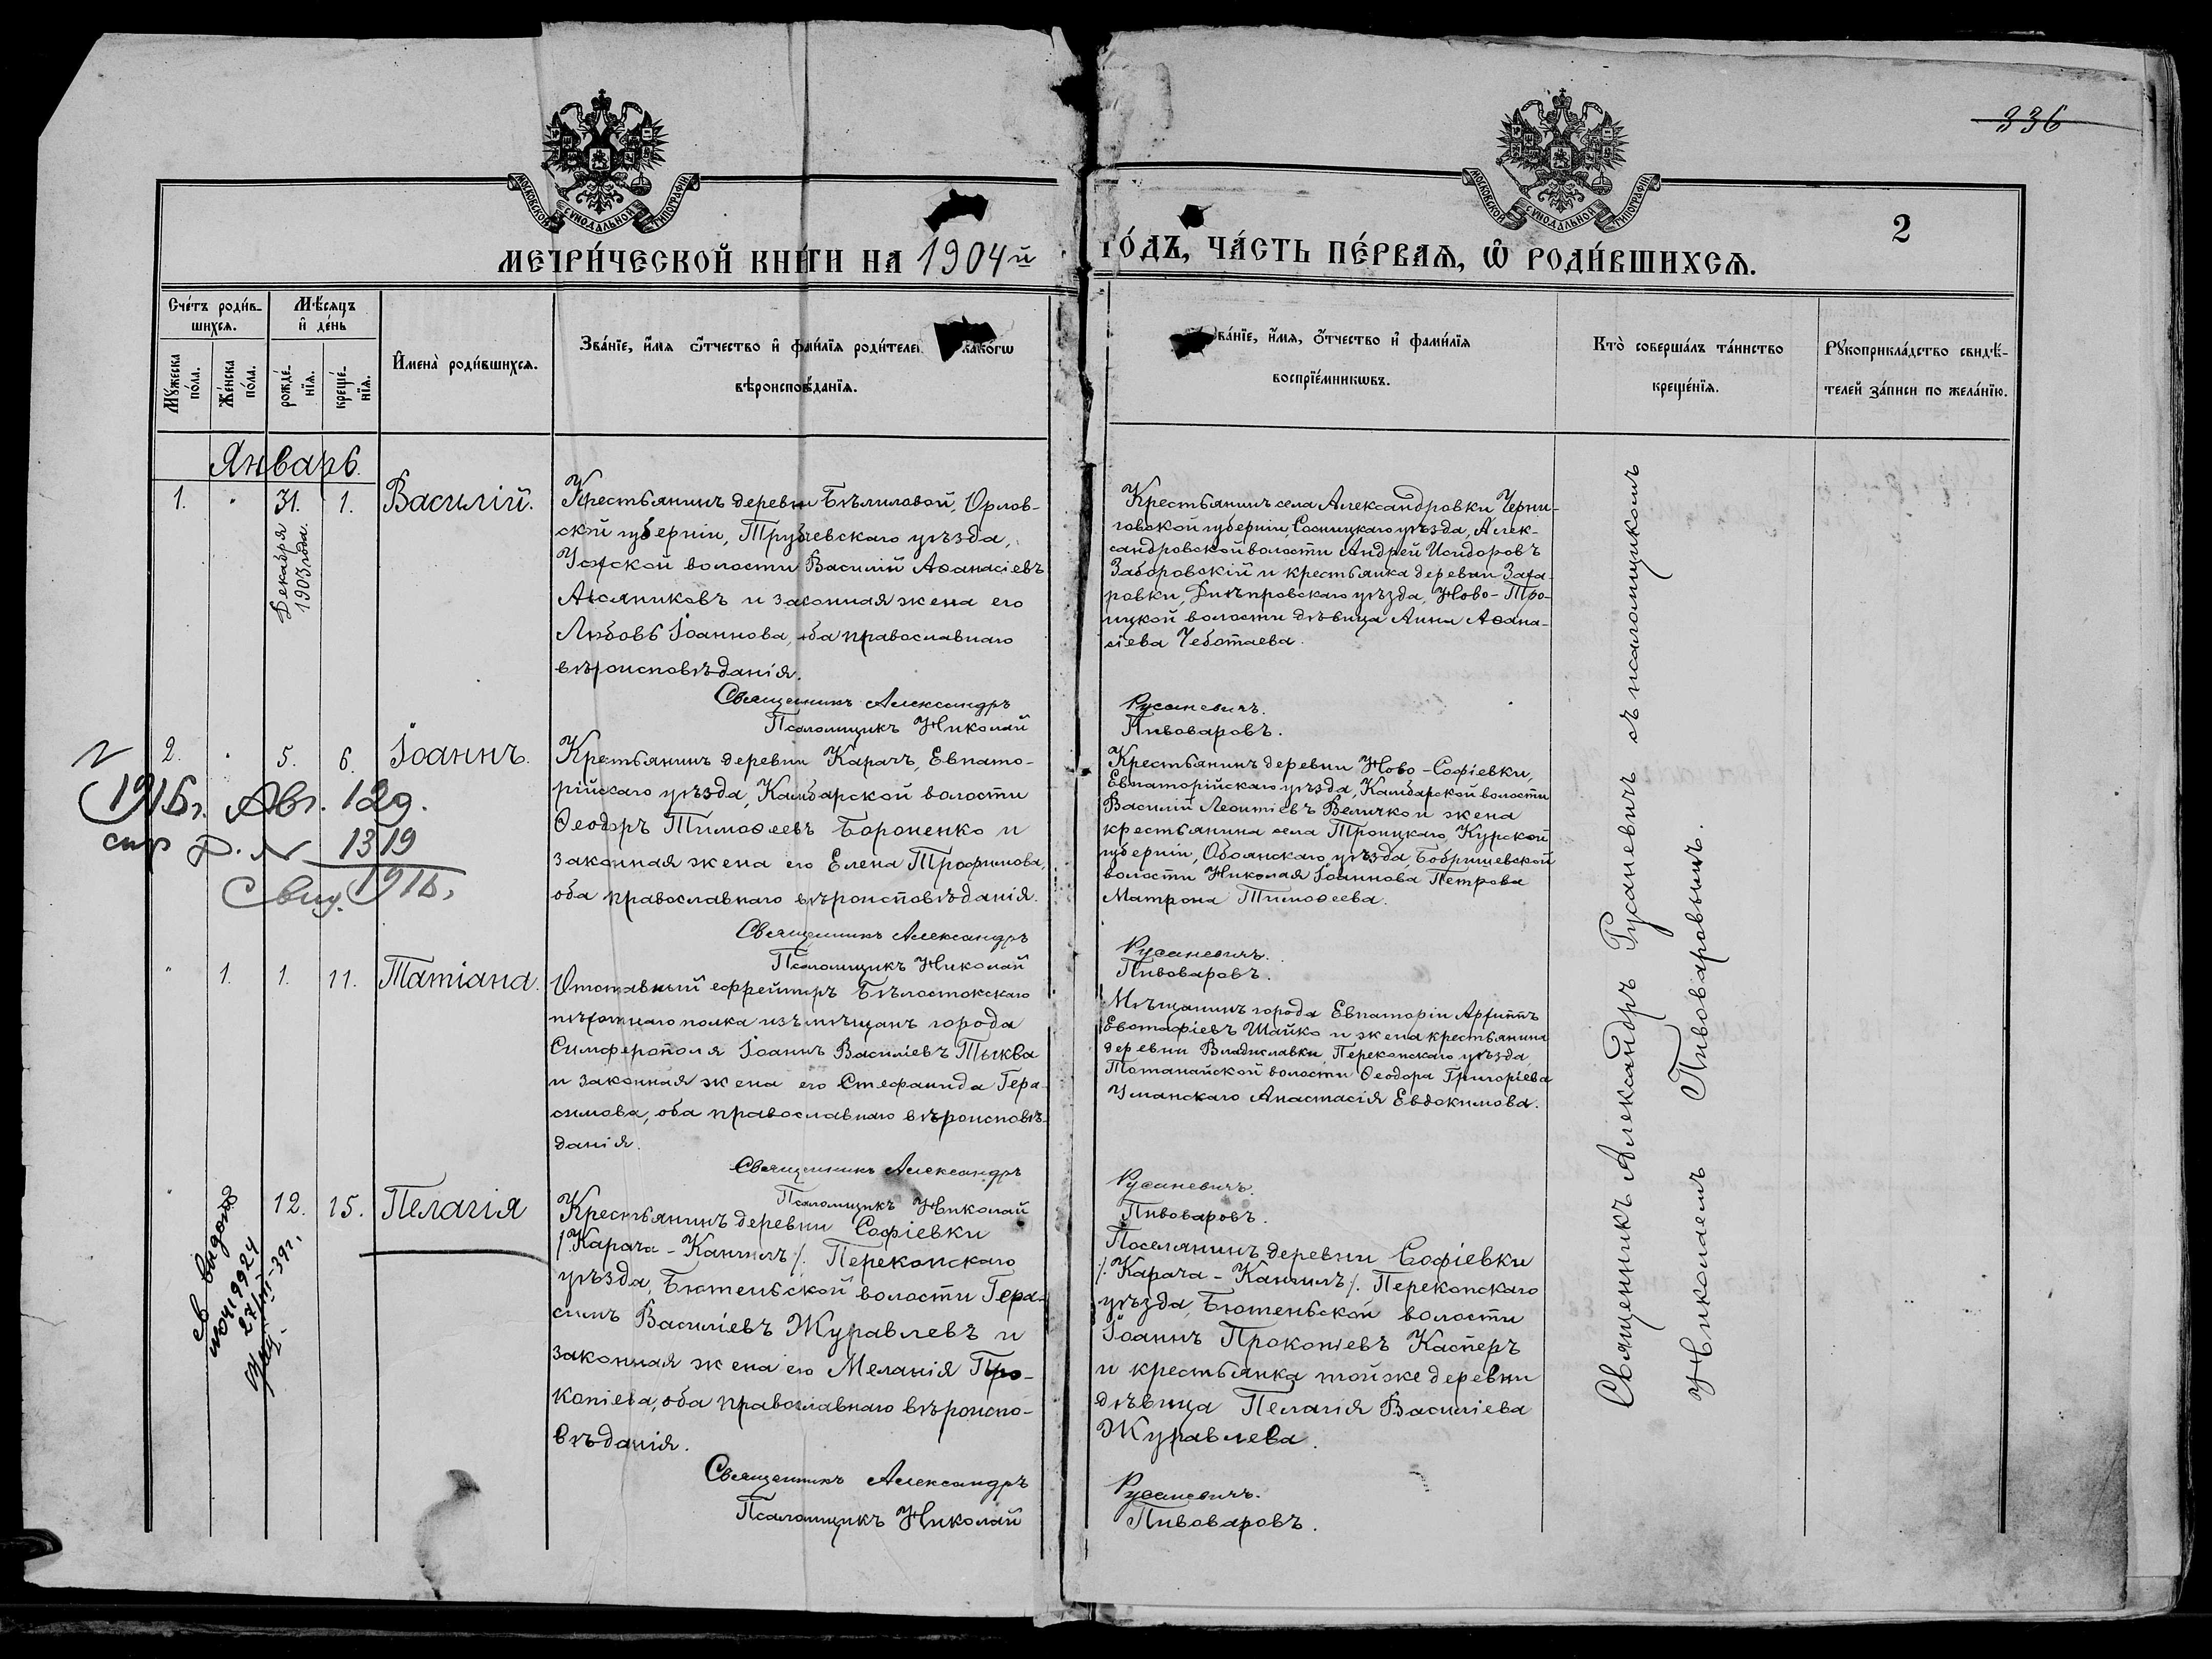 336
МОСКОВСКОЙ СѴНОДАЛЬНОЙ ТИПОГРАФІИ
МОСКОВСКОЙ СѴНОДАЛЬНОЙ ТИПОГРАФІИ
2
МЕТРИ́ЧЕСКОЙ КНИ́ГИ НА 1904й
ГО́ДЪ, ЧА́СТЬ ПЕ́РВАѦ, Ѡ РОДИ́ВШИХСѦ.
Сче́тъ роди́в-
шихсѧ.
Мѣ́сѧцъ
и де́нь
Мꙋ́жеска
по́ла.
Же́нска
по́ла.
рожде́-
нїѧ.
креще́-
нїѧ.
Имена̀ роди́вшихсѧ.
Зва́нїе, и́мѧ ѻ́тчество и фами́лїѧ роди́телей како́гѡ
вѣроисповѣ́данїѧ.
ва́нїе, и́мѧ, ѻ́тчество и фами́лїѧ
воспрїе́мникѡвъ.
Кто̀ соверша́лъ та́инство
креще́нїѧ.
Рꙋкоприкла́дство свидѣ́-
телей за́писи по жела́нїю.
Январь.
1. " 31. 1. Василій.
Декабря
1903 года.
Крестьянинъ деревни Орлов-
ской губерніи, Трубчевскаго уѣзда,
волости Василій Аѳанасіевъ
и законная жена его
Любовь Іоаннова, оба православнаго
вѣроисповѣданія.
Священникъ Александръ
Псаломщикъ Николай
Крестьянинъ села Александровки Черни-
говской губерніи, Сосницкаго уѣзда, Алек-
сандровской волости Андрей Исидоровъ
Заборовскій и крестьянка деревни Заха-
ровки, Днѣпровскаго уѣзда, Ново-Тро-
ицкой волости дѣвица Анна Аѳана-
сіева Чеботаева.
Русаневичъ.
Пивоваровъ.
2. " 5. 6. Іоаннъ.
1916г. Авг. 129.
1319
1916.
Крестьянинъ деревни Карачъ, Евпато-
рійскаго уѣзда, Камбарской волости
Ѳеодоръ Тимоѳеевъ Бороненко и
законная жена его Елена Трофимова,
оба православнаго вѣроисповѣданія.
Священникъ Александръ
Псаломщикъ Николай
Крестьянинъ деревни Ново-Софіевки,
Евпаторійскаго уѣзда, Камбарской волости
Василій Леонтіевъ Величко и жена
крестьянина села Троицкаго, Курской
губерніи, Обоянскаго уѣзда, Бобрышевской
волости Николая Іоаннова Петрова
Матрона Тимоѳеева.
Русаневичъ.
Пивоваровъ.
" 1. 1. 11. Татіана.
Отставный ефрейторъ Бѣлостокскаго
пѣхотнаго полка изъ мѣщанъ города
Симферополя Іоаннъ Василіевъ Тыква
и законная жена его Стефанида Гера-
симова, оба православнаго вѣроисповѣ-
данія.
Священникъ Александръ
Псаломщикъ Николай
Мѣщанинъ города Евпаторіи Архиппъ
Евстафіевъ Шайко и жена крестьянина
деревни Владиславки, Перекопскаго уѣзда
Тотанайской волости Ѳеодора Григоріева
Уманскаго Анастасія Евдокимова.
Русаневичъ.
Пивоваровъ.
" 12. 15. Пелагія
св выдано
27/VII-39г.
Крестьянинъ деревни Софіевки
/Карача-Кангилъ/. Перекопскаго
уѣзда, Бютеньской волости Гера-
симъ Василіевъ Журавлевъ и
законная жена его Меланія Про-
копіева, оба православнаго вѣроиспо-
вѣданія.
Священникъ Александръ
Псаломщикъ Николай
Поселянинъ деревни Софіевки
/. Карача-Кангилъ/. Перекопскаго
уѣзда, Бютеньской волости
Іоаннъ Прокопіевъ Касперъ
и крестьянка той же деревни
дѣвица Пелагія Василіева
Журавлева.
Русаневичъ.
Пивоваровъ.
Священникъ Александръ Русаневичъ съ псаломщикомъ
Николаемъ Пивоваровымъ.